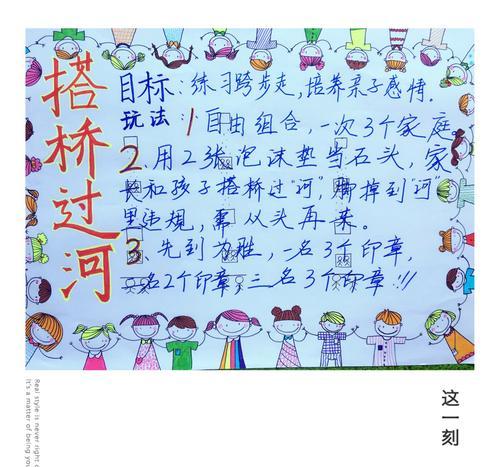 搭桥过河
目标:练习跨步走,培养亲子感情.
玩法:1自由组合,一次3个家庭
2.用2张泡沫垫当石头,家
长和孩子搭桥过"河",脚掉到"河"
里违规,需从头再来。
3.先到为胜,一名3个印章,
二名2个印章,三名3个印章!!!
这一刻
Real style is never right
It's a matter of being